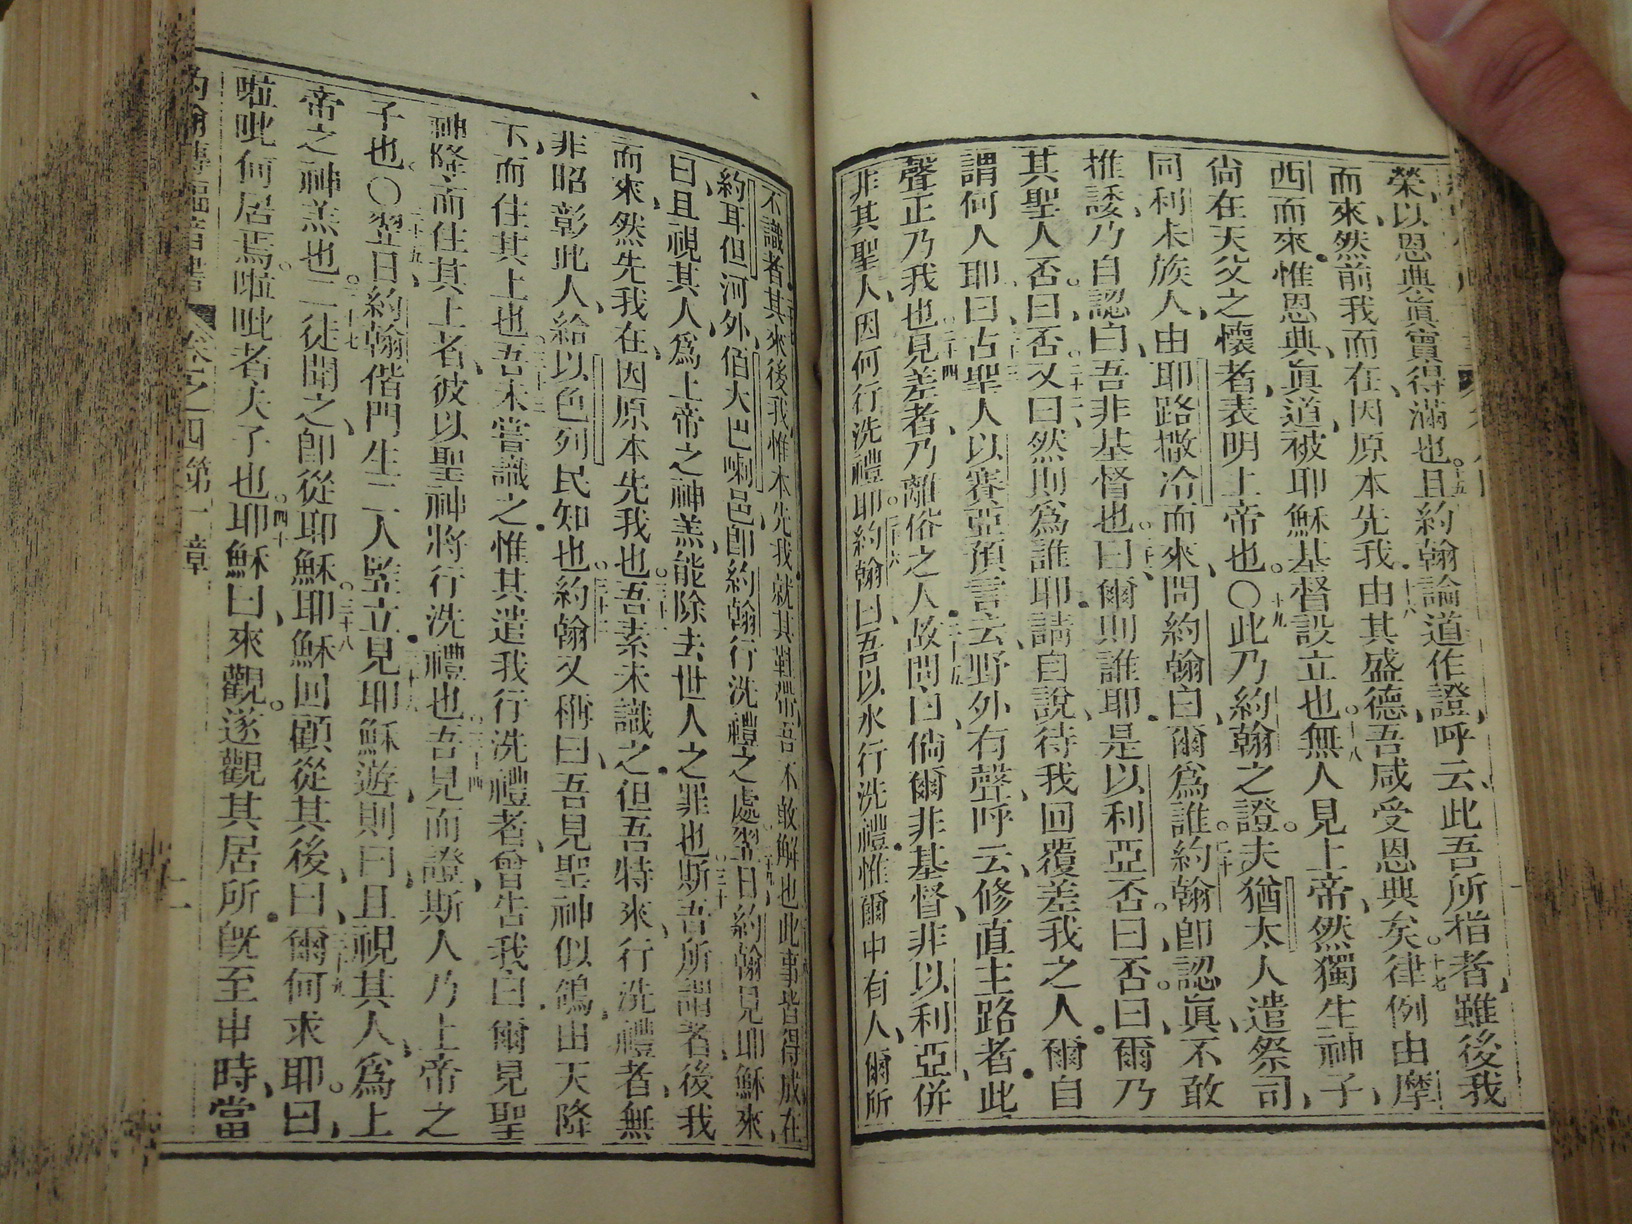 榮、以恩典眞實得滿也。十五且約翰論道作證、呼云、此吾所指者、雖後我
而來、然前我而在、因原本先我。十六由其盛德、吾咸受恩典矣。十七律例由摩
西而來、惟恩典眞道、被耶穌基督設立也。十八無人見上帝、然獨生神子、
尙在天父之懷者、表明上帝也。〇十九此乃約翰之證。夫猶太人遣祭司、
同利未族人、由耶路撒冷而來、問約翰曰、爾爲誰。二十約翰卽認眞、不敢
推諉、乃自認曰、吾非基督也。二一曰、爾則誰耶。是以利亞否。曰、否。曰、爾乃
其聖人否。曰、否。二十二又曰、然則爲誰耶。請自說、待我回覆差我之人。爾自
謂何人耶。二十三曰、古聖人以賽亞預言云、野外有聲、呼云、修直主路者、此
聲正乃我也。二十四見差者、乃離俗之人。二十五故問曰、倘爾非基督、非以利亞、併
非其聖人、因何行洗禮耶。二十六約翰曰、吾以水行洗禮。惟爾中有人、爾所
不識者、其來後我、惟本先我、就其鞋帶、吾不敢解也。此事皆得成在
約耳但河外、伯大巴喇邑、卽約翰行洗禮之處。二十九翌日約翰見耶穌來、
曰、且視其人、爲上帝之神羔、能除去世人之罪也。三十斯吾所謂者、後我
而來、然先我在、因原本先我也。三十一吾素未識之。但吾特來行洗禮者、無
非昭彰此人、給以色列民知也。三十二約翰又稱曰、吾見聖神似鴿由天降
下、而住其上也。三十三吾未嘗識之。惟其遣我行洗禮者、曾吿我曰、爾見聖
神降、而住其上者、彼以聖神將行洗禮也。三十四吾見而證、斯人乃上帝之
子也。〇三十五翌日約翰偕門生二人竪立。三十六見耶穌遊、則曰、且視其人、爲上
帝之神羔也。三十七二徒聞之、卽從耶穌。三十八耶穌回顧從其後、曰、爾何求耶。曰、
啦吡何居焉。啦吡者、夫子也。四十耶穌曰、來觀。遂觀其居所。旣至申時、當
約翰傳福音書 卷之四 第一章 二